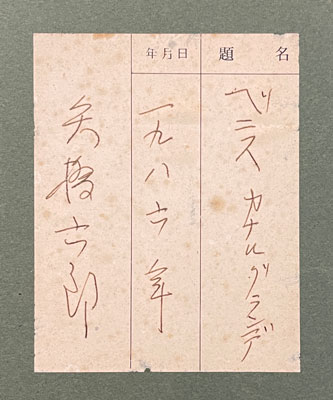 題名
ベニス カナルグランデ
年月日
一九八六年
矢橋六郎